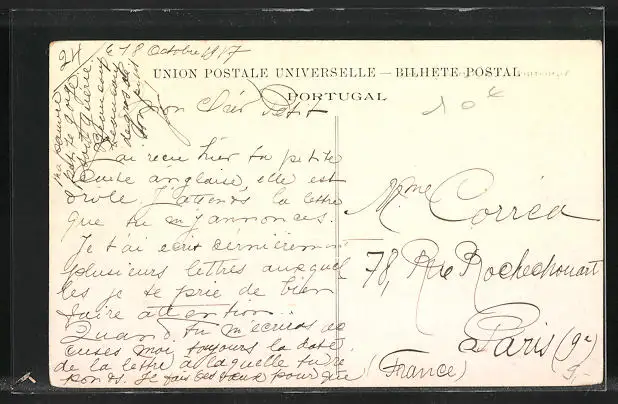 Le 18 Octobre 1917
UNION POSTALE UNIVERSELLE — BILHETE POSTAL
PORTUGAL
10 c
Mon Cher Petit
J'ai recu hier ta petite
carte anglaise, elle est
drole. J'attends la lettre
que tu m'y annonces.
Je t'ai ecrit dernièrement
plusieurs lettres auxquel
les je te prie de bien
faire attention.
Quand tu m'ecriras ac
cuses moi toujours la date
de la lettre à laquelle tu re
ponds. Je fais des voeux pour que
ma pauvre
petite gorge
soit guérie.
beaucoup
Mme Corréa
78, Rue Rochechouart
Paris (9e)
(France)